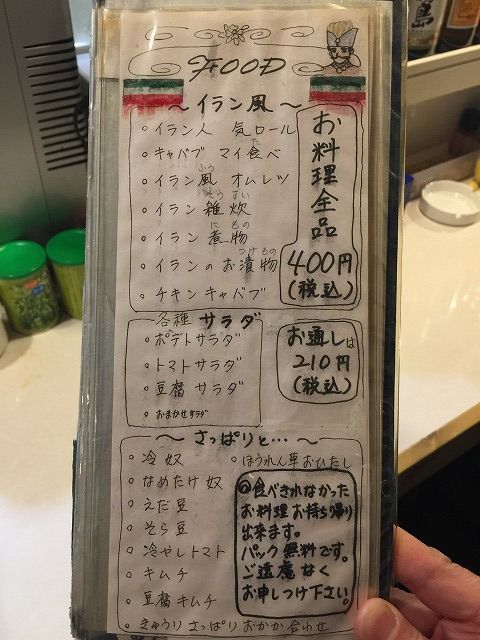 FOOD
～イラン風～
・イラン人 気ロール
・キャバブ マイ食べ
た
・イラン風 オムレツ
ふう
・イラン 雑炊
ぞうすい
・イラン 煮物
にもの
・イランのお漬物
つけもの
・チキンキャバブ
お料理全品
400円
(税込)
各種 サラダ
・ポテトサラダ
・トマトサラダ
・豆腐 サラダ
・おまかせサラダ
お通しは
210円
(税込)
～さっぱりと…～
・冷奴
・なめたけ奴
・えだ豆
・そら豆
・冷やしトマト
・キムチ
・豆腐キムチ
・きゅうり さっぱり おかか 合わせ
・ほうれん草おひたし
◎食べきれなかった
お料理お持ち帰り
出来ます。
パック無料です。
ご遠慮なく
お申しつけ下さい。